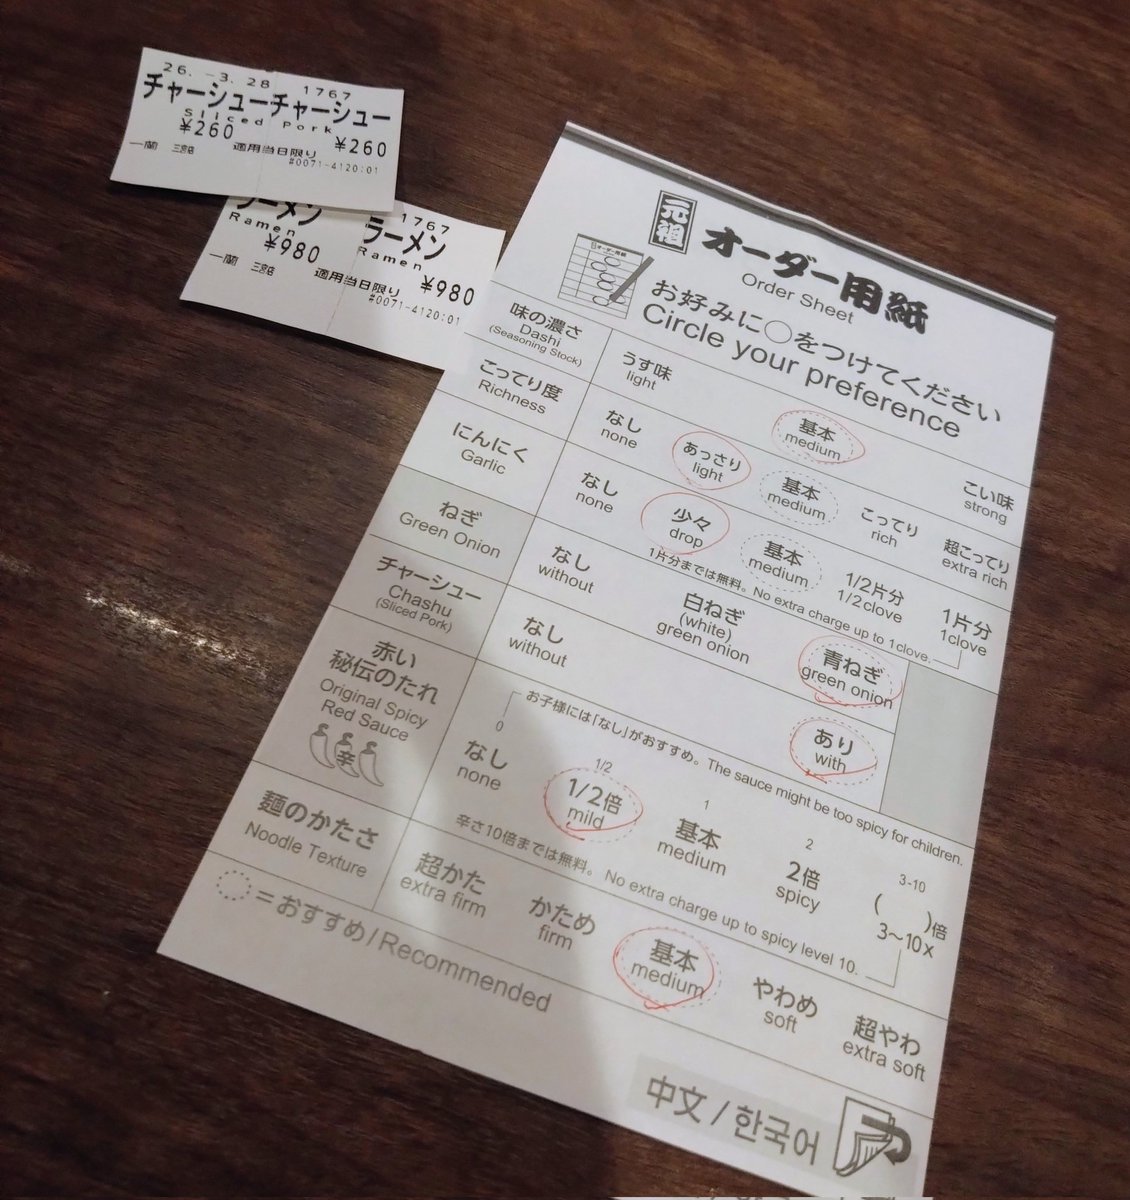 26.-3.28 1767
チャーシューチャーシュー
Sliced Pork
¥260 ¥260
一蘭 三宮 適用当日限り
#0071-4120:01
ラーメン 1767
Ramen ラーメン
¥980 Ramen
一蘭 三宮 適用当日限り ¥980
#0071-4120:01
元祖 オーダー用紙
Order Sheet
お好みに○をつけてください
Circle your preference
味の濃さ
Dashi
(Seasoning Stock)
うす味
light
基本
medium
こい味
strong
こってり度
Richness
なし
none
あっさり
light
基本
medium
こってり
rich
超こってり
extra rich
にんにく
Garlic
なし
none
少々
drop
基本
medium
1/2片分
1/2clove
1片分
1clove
1片分までは無料。No extra charge up to 1clove.
ねぎ
Green Onion
なし
without
白ねぎ
(white)
green onion
青ねぎ
green onion
チャーシュー
Chashu
(Sliced Pork)
なし
without
あり
with
赤い
秘伝のたれ
Original Spicy
Red Sauce
辛
お子様には「なし」がおすすめ。The sauce might be too spicy for children.
0
なし
none
1/2
1/2倍
mild
1
基本
medium
2
2倍
spicy
3-10
( )倍
3〜10x
辛さ10倍までは無料。No extra charge up to spicy level 10.
麺のかたさ
Noodle Texture
超かた
extra firm
かため
firm
基本
medium
やわめ
soft
超やわ
extra soft
=おすすめ/Recommended
中文/한국어